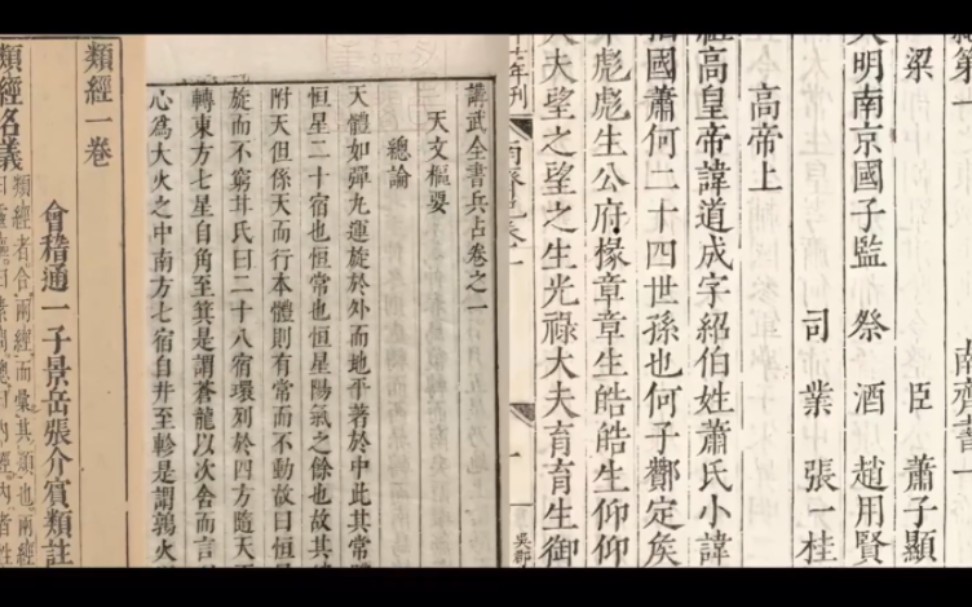 第一
南齊書一
梁 臣 蕭子顯
大明南京國子監 祭 酒 趙用賢
司 業 張一桂
高帝上
高皇帝諱道成字紹伯姓蕭氏小諱
國蕭何二十四世孫也何子酇定矦
彪彪生公府掾章章生皓皓生仰仰
大夫望之望之生光祿大夫育育生御
年刊
講武全書兵占卷之一
天文樞要
總論
天體如彈丸運旋於外而地平著於中此其常
恒星二十宿也恒常也恒星陽氣之餘也故其
附天但係天而行本體則有常而不動故曰恒
旋而不窮井氏曰二十八宿環列於四方隨天
轉東方七星自角至箕是謂蒼龍以次舍而言
心為大火之中南方七宿自井至軫是謂鶉火
類經一卷
會稽通一子景岳張介賓類註
類經名義
類經者合兩經而彙其類也兩經
曰素問總曰內經內者性